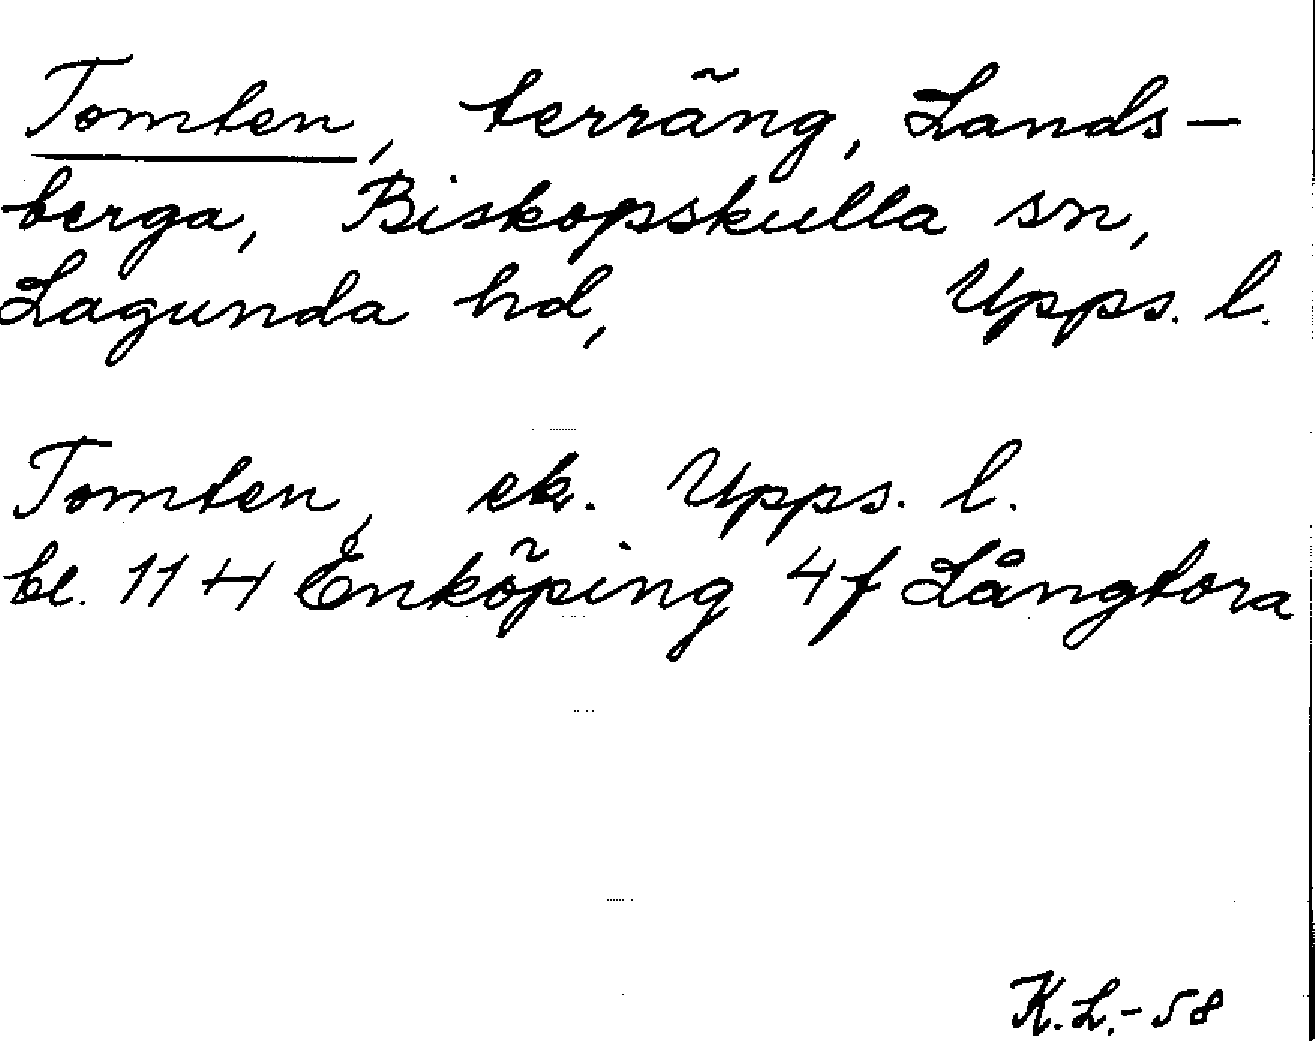 Tomten, terräng, Lands-
berga, Biskopskulla sn,
Lagunda hd, Upps. l.
Tomten, ek. Upps. l.
bl. 11 H Enköping 4f Långtora
K.L.-58